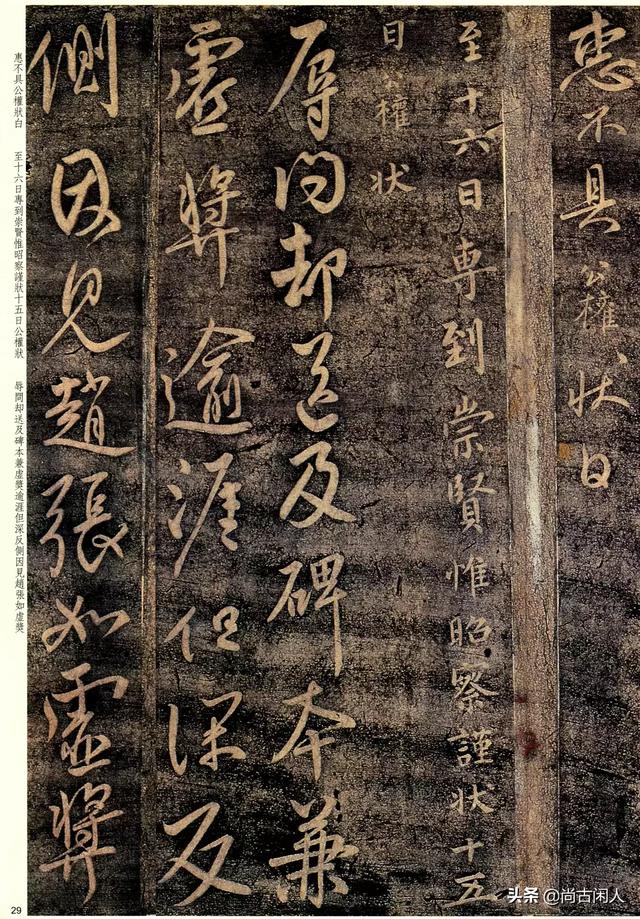 惠不具公權状白
至十六日專到崇賢惟昭察謹狀十五
日公權状
辱问却送及碑本兼
虛奬逾涯但深反
側因見趙張如虛奬
惠不具公權狀白 至十六日專到崇賢惟昭察謹狀十五日公權狀 辱問却送及碑本兼虛奬逾涯但深反側因見趙張如虛奬
29
头条 @尚古闲人